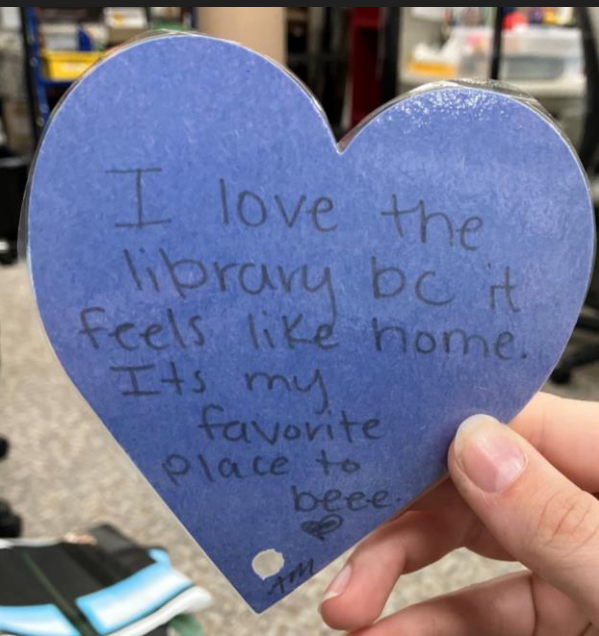 I love the
library bc it
feels like home.
Its my
favorite
place to
beee.
AM